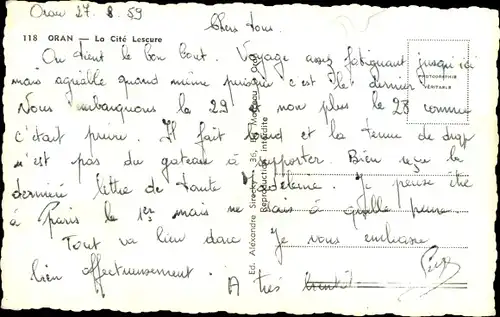 Oran 27. 8. 59
Chers tous.
118 ORAN — La Cité Lescure
On tient le bon bout. Voyage assez fatiguant jusqu'ici
mais agréable quand même puisque c'est le dernier.
Nous embarquons le 29 et non plus le 28 comme
c'était prévu. Il fait chaud et la tenue de drap
n'est pas du gateau à apporter. Bien reçu la
dernière lettre de tante Madeleine. Je pense être
à Paris le 1er mais ne sais à quelle heure.
Tout va bien donc Je vous embrasse
bien affectueusement.
A très bientôt
PHOTOGRAPHIE
VÉRITABLE
Ed. Alexandre Sirecky, 36,
Reproduction interdite